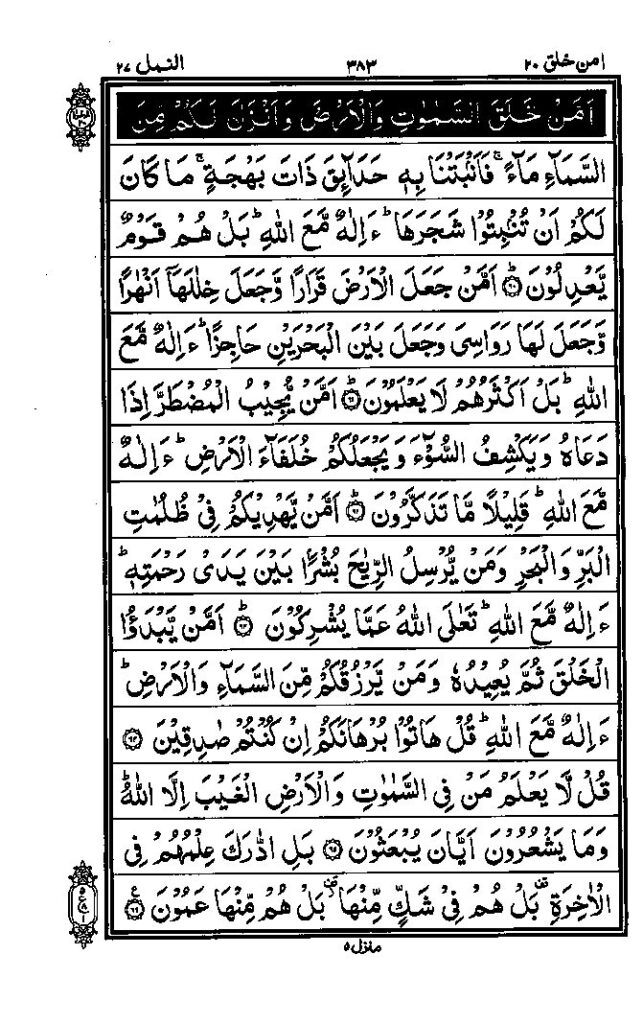 امن خلق ۲۰ ۳۸۳ النمل ۲۷
اَمَّنْ خَلَقَ السَّمٰوٰتِ وَالْاَرْضَ وَاَنْزَلَ لَكُمْ مِّنَ
السَّمَآءِ مَآءً ۚ فَاَنْۢبَتْنَا بِهٖ حَدَآئِقَ ذَاتَ بَهْجَةٍ ۚ مَا كَانَ
لَكُمْ اَنْ تُنْۢبِتُوْا شَجَرَهَا ؕ ءَاِلٰهٌ مَّعَ اللّٰهِ ؕ بَلْ هُمْ قَوْمٌ
يَّعْدِلُوْنَ ﴿۶۰﴾ اَمَّنْ جَعَلَ الْاَرْضَ قَرَارًا وَّجَعَلَ خِلٰلَهَاۤ اَنْهٰرًا
وَّجَعَلَ لَهَا رَوَاسِىَ وَجَعَلَ بَيْنَ الْبَحْرَيْنِ حَاجِزًا ؕ ءَاِلٰهٌ مَّعَ
اللّٰهِ ؕ بَلْ اَكْثَرُهُمْ لَا يَعْلَمُوْنَ ﴿۶۱﴾ اَمَّنْ يُّجِيْبُ الْمُضْطَرَّ اِذَا
دَعَاهُ وَيَكْشِفُ السُّوْٓءَ وَيَجْعَلُكُمْ خُلَفَآءَ الْاَرْضِ ؕ ءَاِلٰهٌ
مَّعَ اللّٰهِ ؕ قَلِيْلًا مَّا تَذَكَّرُوْنَ ﴿۶۲﴾ اَمَّنْ يَّهْدِيْكُمْ فِىْ ظُلُمٰتِ
الْبَرِّ وَالْبَحْرِ وَمَنْ يُّرْسِلُ الرِّيٰحَ بُشْرًۢا بَيْنَ يَدَىْ رَحْمَتِهٖ ؕ
ءَاِلٰهٌ مَّعَ اللّٰهِ ؕ تَعٰلَى اللّٰهُ عَمَّا يُشْرِكُوْنَ ﴿۶۳﴾ اَمَّنْ يَّبْدَؤُا
الْخَلْقَ ثُمَّ يُعِيْدُهٗ وَمَنْ يَّرْزُقُكُمْ مِّنَ السَّمَآءِ وَالْاَرْضِ ؕ
ءَاِلٰهٌ مَّعَ اللّٰهِ ؕ قُلْ هَاتُوْا بُرْهَانَكُمْ اِنْ كُنْتُمْ صٰدِقِيْنَ ﴿۶۴﴾
قُلْ لَّا يَعْلَمُ مَنْ فِى السَّمٰوٰتِ وَالْاَرْضِ الْغَيْبَ اِلَّا اللّٰهُ ؕ
وَمَا يَشْعُرُوْنَ اَيَّانَ يُبْعَثُوْنَ ﴿۶۵﴾ بَلِ ادّٰرَكَ عِلْمُهُمْ فِى
الْاٰخِرَةِ بَلْ هُمْ فِىْ شَكٍّ مِّنْهَا بَلْ هُمْ مِّنْهَا عَمُوْنَ ﴿۶۶﴾
منزل ۵